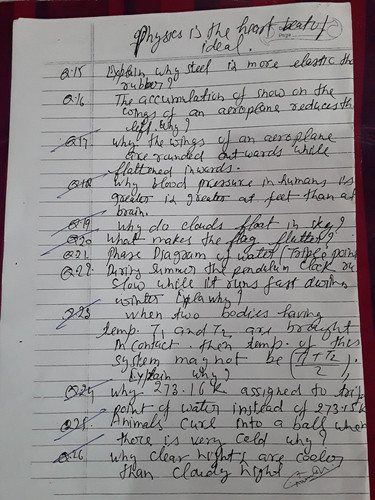 Physics is the heart beat of
ideal.
Q.15 Explain why steel is more elastic tha
rubber?
Q.16 The accumulation of snow on the
wings of an aeroplane reduces the
lift. Why?
Q.17 Why the wings of an aeroplane
are rounded outwards while
flattened inwards.
Q.18 Why blood pressure in humans is
greater is greater at feet than at
brain.
Q.19 Why do clouds float in sky?
Q.20 What makes the flag flutter?
Q.21 Phase Diagram of water (Triple point
Q.22 During summer the pendulum clock ru
slow while it runs fast during
winter Explain why?
Q.23 When two bodies having
temp. T1 and T2, are brought
in contact. then temp. of this
system may not be (T1+T2/2).
Explain why?
Q.24 Why 273.16K assigned to trip
point of water instead of 273.15K
Q.25 Animals curl into a ball when
there is very cold why?
Q.26 Why clear nights are cooler
than cloudy night